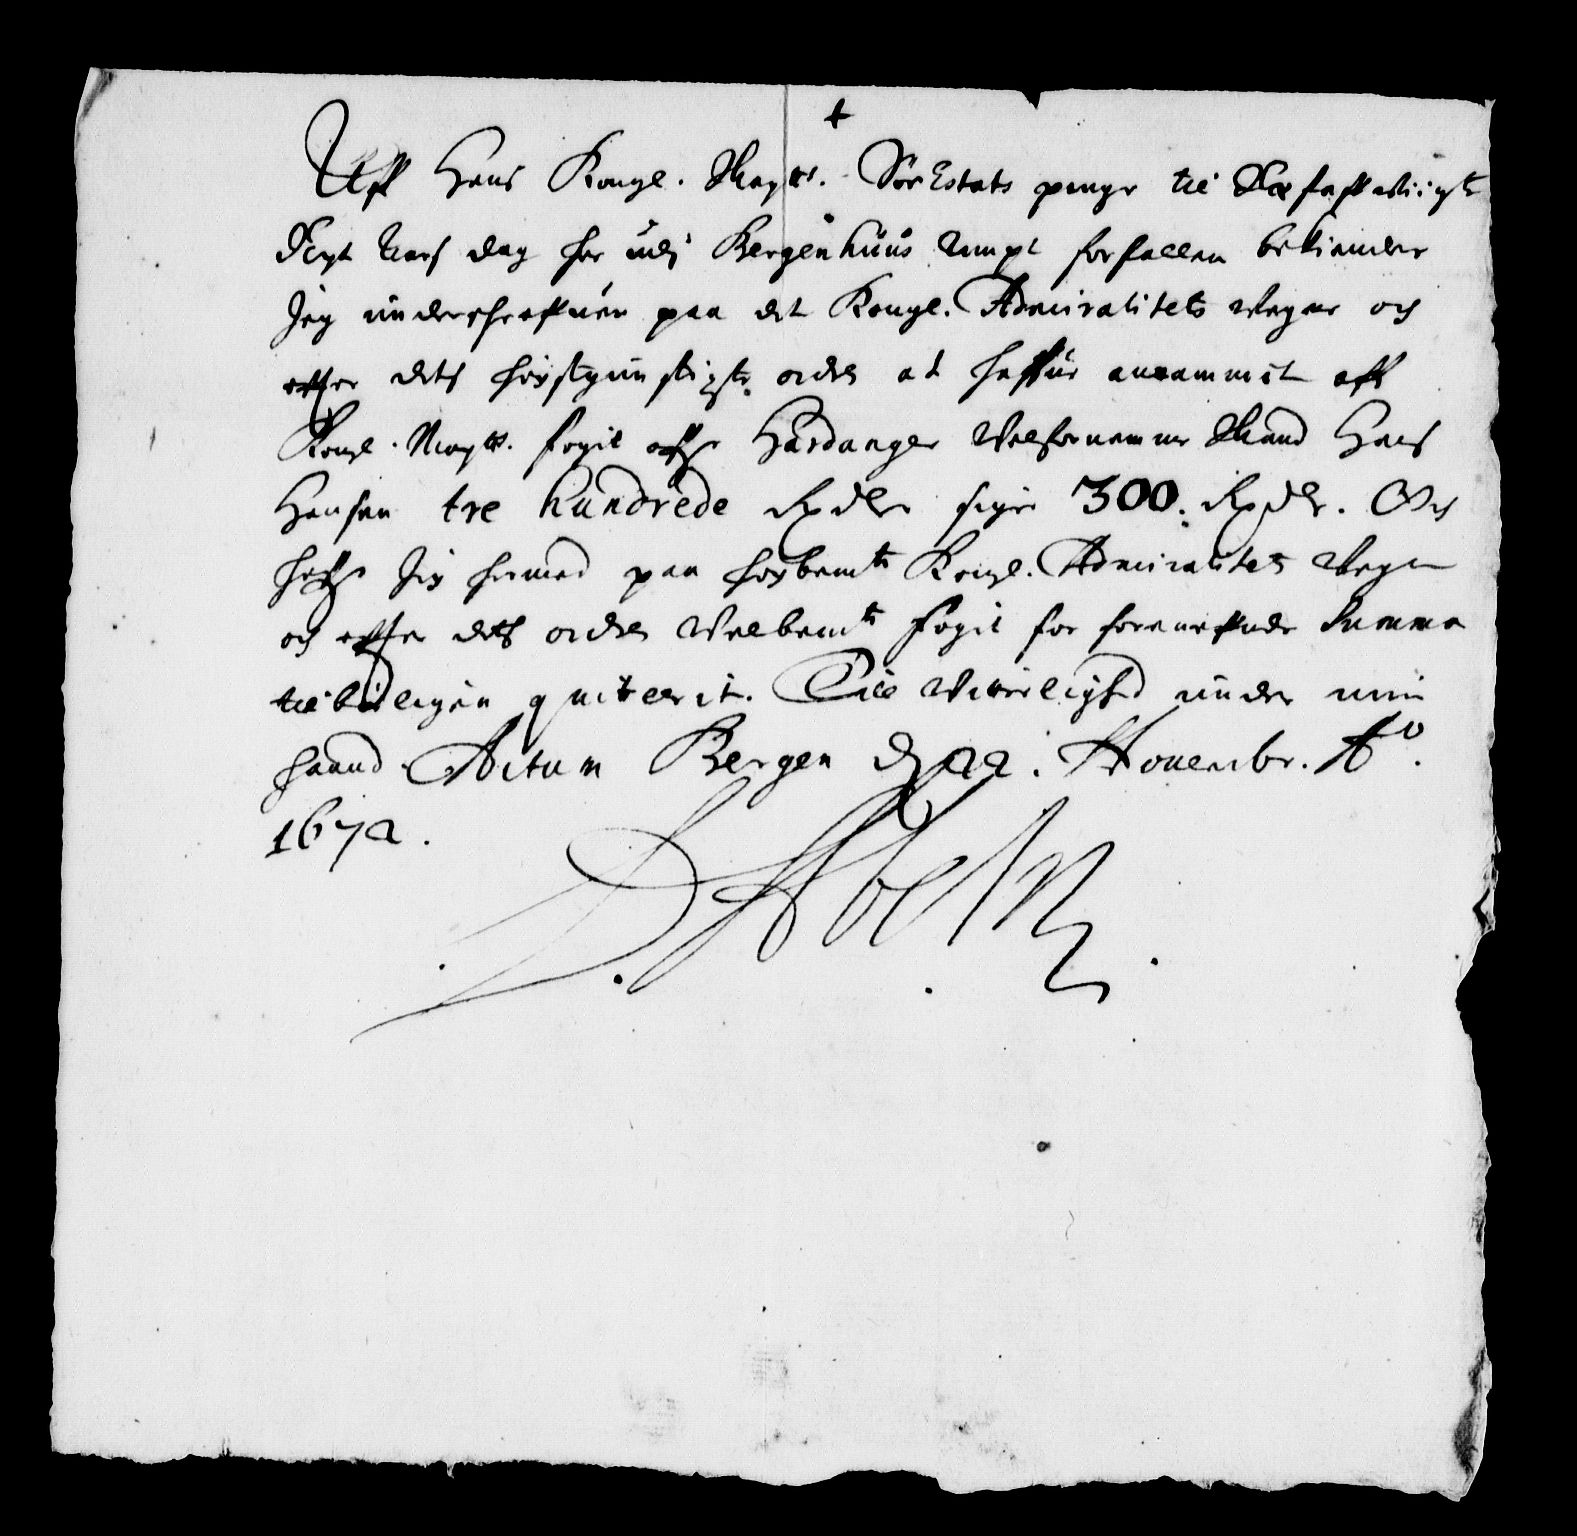 +
Aff Hans Kongl. Maytts. SöeEstats penge til
Nyt Aars dag her udj Bergenhuus Ampt forfallen bekiender
Jeg underschrefuen paa det Kongl. Admiralitets Vegne och
effter dets högstgunstigste ordre at haffue annammit aff
Kongl. Maytts. fogit offuer Hardanger Welfornemme Mand Hans
Hansen tre hundrede Rixdlr siger 300. Rixdlr. Och
haffuer Jeg hermed paa högbemte Kongl. Admiralitets Vegne
och effter dets ordre Velbemte fogit for forneffnde Summa
tilbörligen quitterit. Till Vitterlighed under min
haand Actum Bergen d. 22. Novembr. Ao.
1672.